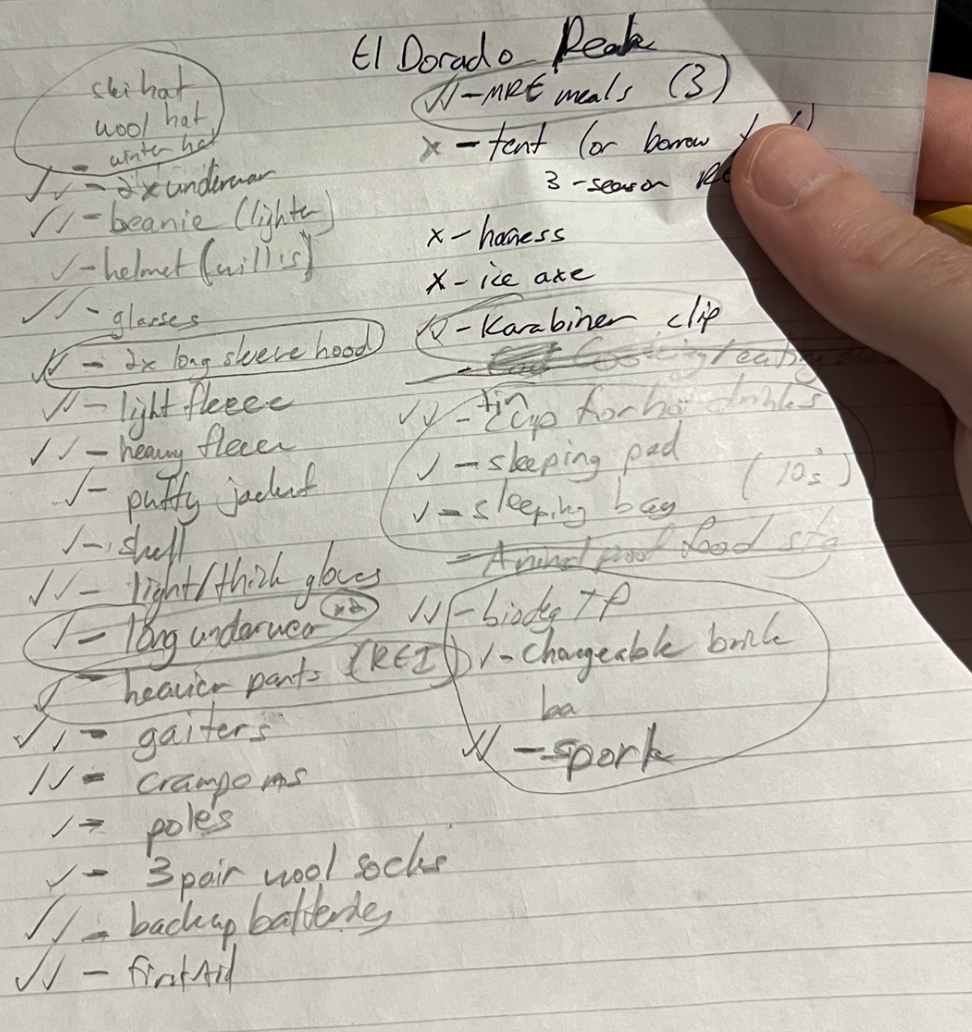 El Dorado Peak
ski hat
wool hat
- winter hat
✓✓ - 2x underwear
✓✓ - beanie (lighter)
✓ - helmet (willis)
✓✓ - glasses
✓✓ - 2x long sleeve hood
✓✓ - light fleece
✓✓ - heavy fleece
✓ - puffy jacket
✓ - shell
✓✓ - light/thick gloves
✓ - long underwear x2
✓ - heavier pants (REI)
✓✓ - gaiters
✓✓ - crampons
✓ - poles
✓ - 3 pair wool socks
✓✓ - backup batteries
✓✓ - first Aid
✓✓ - MRE meals (3)
x - tent (or borrow
3-season
x - harness
x - ice axe
✓✓ - Karabiner clip
- Cooking/eating
✓✓ - tin cup for hot drinks
✓ - sleeping pad
✓ - sleeping bag (10s)
- Animal proof food
✓✓ - biodeg TP
✓ - Chargeable brick
ba
✓✓ - spork